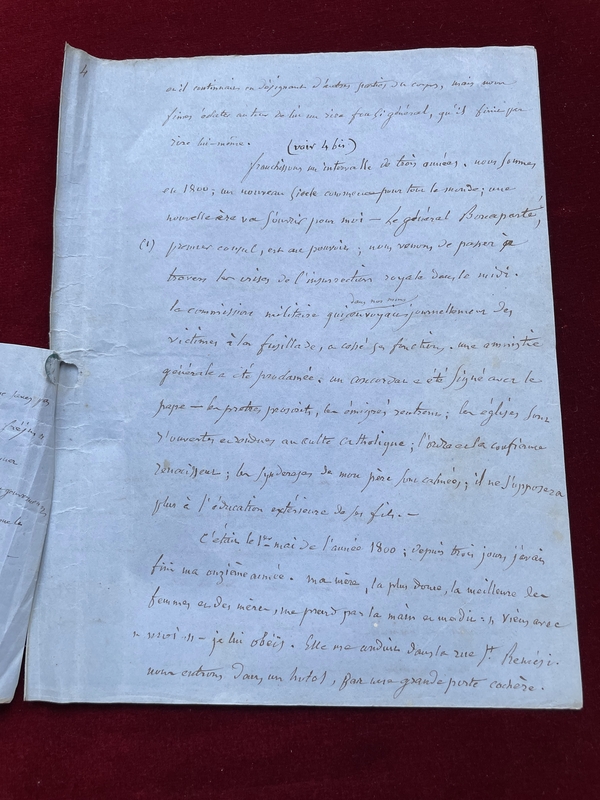 4
et il continuait en désignant d'autres parties du corps, mais nous
fimes éclater autour de lui un rire si général, qu'il finit par
rire lui-même.
(voir 4 bis)
franchissons un intervalle de trois années. nous sommes
en 1800; un nouveau siècle commence pour tout le monde; une
nouvelle ère va s'ouvrir pour moi — Le général Bonaparte,
(1) premier consul, est au pouvoir; nous venons de passer à
travers les crises de l'insurrection royale dans le midi.
dans nos murs
la commission militaire qui envoyait journellement des
victimes à la fusillade, a cessé ses fonctions. une amnistie
générale a été proclamée. un concordat a été signé avec le
pape — les prêtres les émigrés rentrent; les églises sont
r'ouvertes et rendues au culte catholique; l'ordre et la confiance
renaissent; les synderèses de mon père sont calmées; il ne s'opposera
plus à l'éducation extérieure de ses fils. —
C'était le 1er mai de l'année 1800; depuis trois jours, j'avais
fini ma onzième année. ma mère, la plus douce, la meilleure des
femmes et des mères, me prend par la main et me dit: » viens avec
» moi » — je lui obéis. Elle me conduit dans la rue St.
nous entrons dans un hotel, par une grande porte cochère.